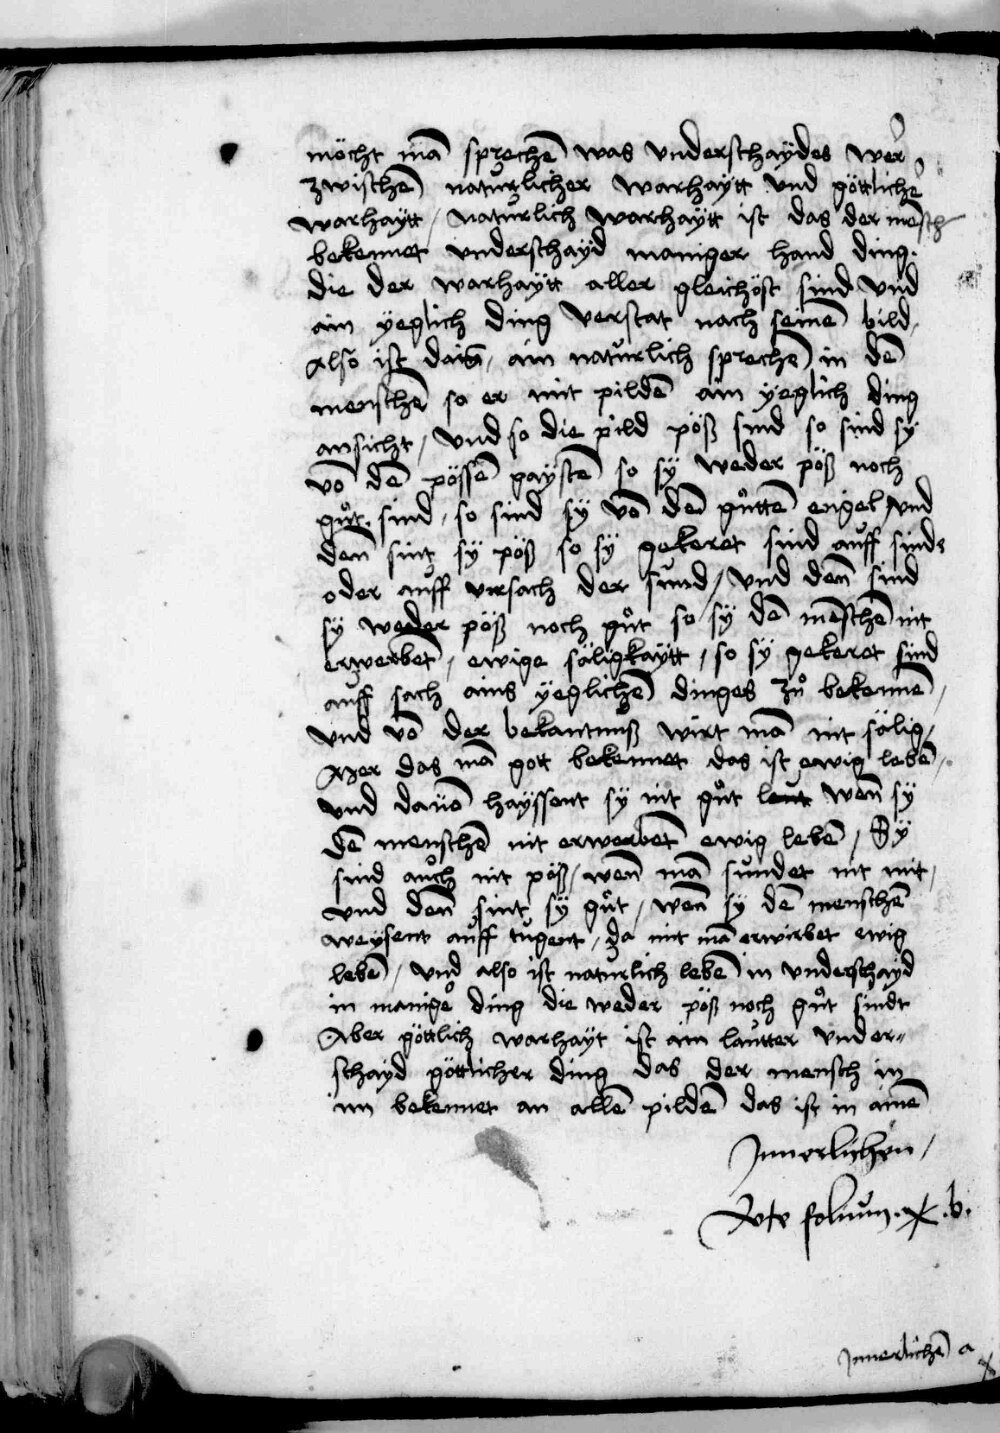 möcht mā sprechē was vnderschaydes wer
zwischē natürlicher warhaÿtt vnd göttlicher
warhaÿtt / natürlich warhaÿtt ist das der mēsch
bekennet vnderschaÿd maniger hand ding.
die der warhaÿtt aller gleichöst sind vnd
ain ÿeglich ding verstat nach seinē bild,
Also ist ain natürlich sprechē in dē
menschē so er mit pildē ain ÿeglich ding
ansicht / vnd so die pild pöß sind so sind sÿ
vō dē pössē gaÿstē so sÿ weder pöß noch
gůt sind, so sind sÿ vō dē gůttē engel / vnd
deñ sint sÿ pöß so sÿ gekeret sind auff sinde
oder auff vrsach der sünd / vnd deñ sind
sÿ weder pöß noch gůt so sÿ dē mēschē nit
erwerbet, ewige säligkaÿtt, so sÿ gekeret sind
auff sach ains ÿeglichē dinges zů bekennē,
vnd vō der bekantnuß wirt mā nit sälig,
Aber das mā gott bekennet das ist ewig lebē,
vnd dauō haÿssent sÿ nit gůt leut weñ sÿ
dē menschē nit erwerbet ewig lebē / Sÿ
sind auch nit pöß / weñ mā sündet nit mit,
vnd deñ sint sÿ gůt / weñ sÿ dē menschē
weÿsent auff tugent, da mit mā erwirbet ewig
lebē / vnd also ist natürlich lebē in vnderschaÿd
in manige ding die weder pöß noch gůt sindt
Aber göttlich warhaÿt ist ain lautter vnder-
schaÿd göttlicher ding das der mensch in
im bekennet an allē pildē das ist in ainē
Innerlichen /
folium . x . b.
Innerlichē a
x